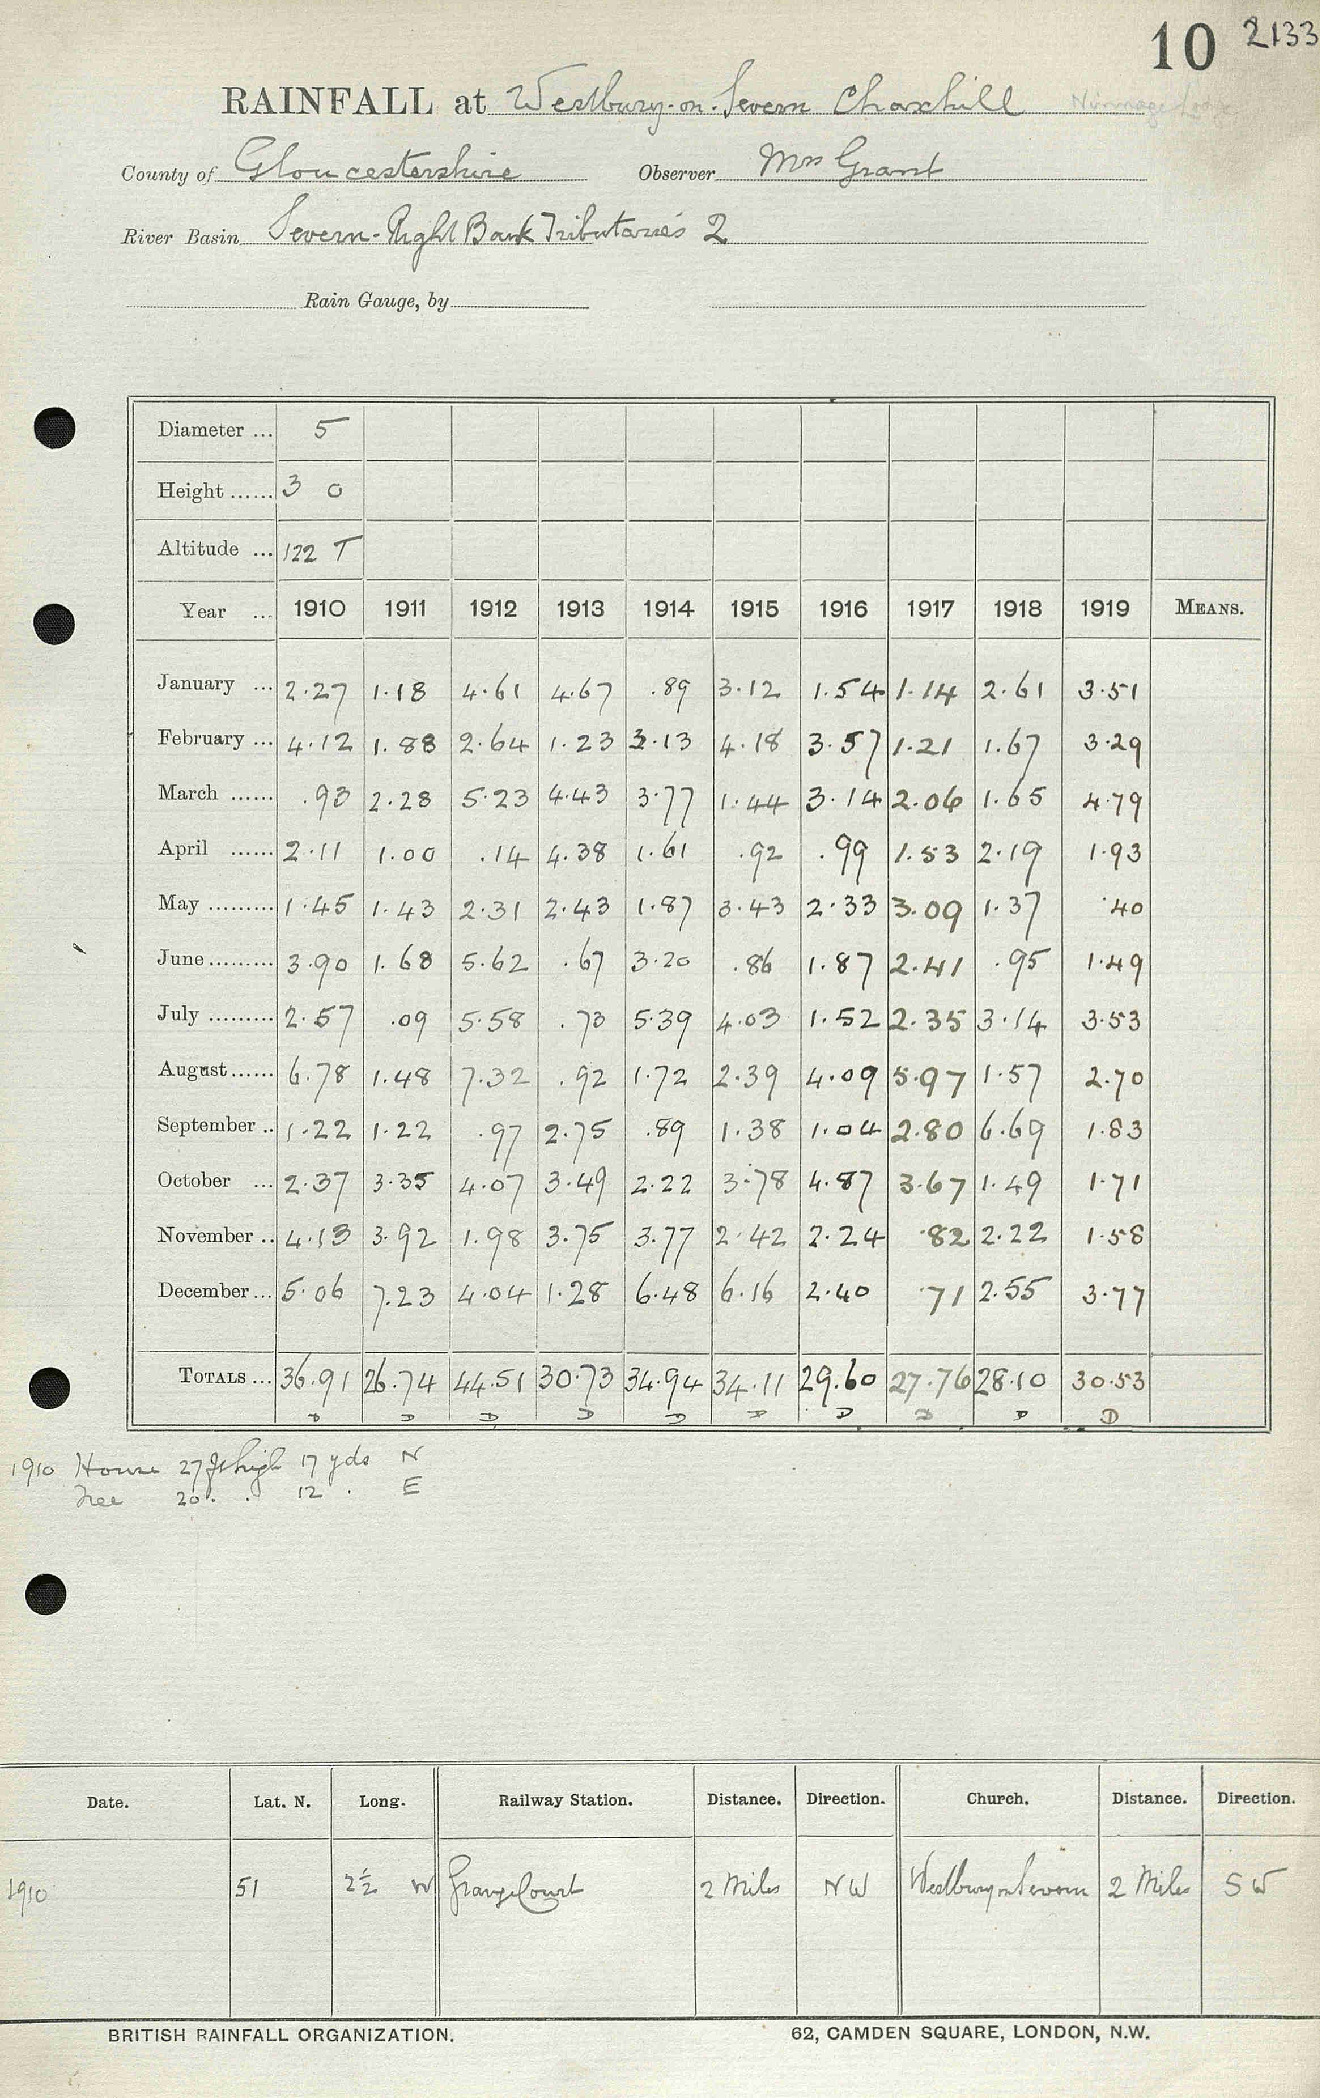 10 2133
RAINFALL at Westbury-on-Severn Chaxhill
County of Gloucestershire Observer Mrs Grant
River Basin Severn-Right Bank Tributaries 2
Rain Gauge, by
Diameter ... 5
Height ...... 3 0
Altitude ... 122 T
Year ... 1910 1911 1912 1913 1914 1915 1916 1917 1918 1919 MEANS.
January ... 2.27 1.18 4.61 4.67 .89 3.12 1.54 1.14 2.61 3.51
February ... 4.12 1.88 2.64 1.23 3.13 4.18 3.57 1.21 1.67 3.29
March ...... .93 2.28 5.23 4.43 3.77 1.44 3.14 2.06 1.65 4.79
April ...... 2.11 1.00 .14 4.38 1.61 .92 .99 1.53 2.19 1.93
May ......... 1.45 1.43 2.31 2.43 1.87 3.43 2.33 3.09 1.37 .40
June ......... 3.90 1.68 5.62 .67 3.20 .86 1.87 2.41 .95 1.49
July ......... 2.57 .09 5.58 .73 5.39 4.03 1.52 2.35 3.14 3.53
August ...... 6.78 1.48 7.32 .92 1.72 2.39 4.09 5.97 1.57 2.70
September .. 1.22 1.22 .97 2.75 .89 1.38 1.04 2.80 6.69 1.83
October ... 2.37 3.35 4.07 3.49 2.22 3.78 4.87 3.67 1.49 1.71
November .. 4.13 3.92 1.98 3.75 3.77 2.42 2.24 .82 2.22 1.58
December ... 5.06 7.23 4.04 1.28 6.48 6.16 2.40 .71 2.55 3.77
TOTALS ... 36.91 26.74 44.51 30.73 34.94 34.11 29.60 27.76 28.10 30.53
D D D D D D D D D D
1910 House 27 ft high 17 yds N
Tree 20 . . 12 . E
Date. Lat. N. Long. Railway Station. Distance. Direction. Church. Distance. Direction.
1910 51 2½ W Grange Court 2 Miles NW Westbury on Severn 2 Miles SW
BRITISH RAINFALL ORGANIZATION. 62, CAMDEN SQUARE, LONDON, N.W.